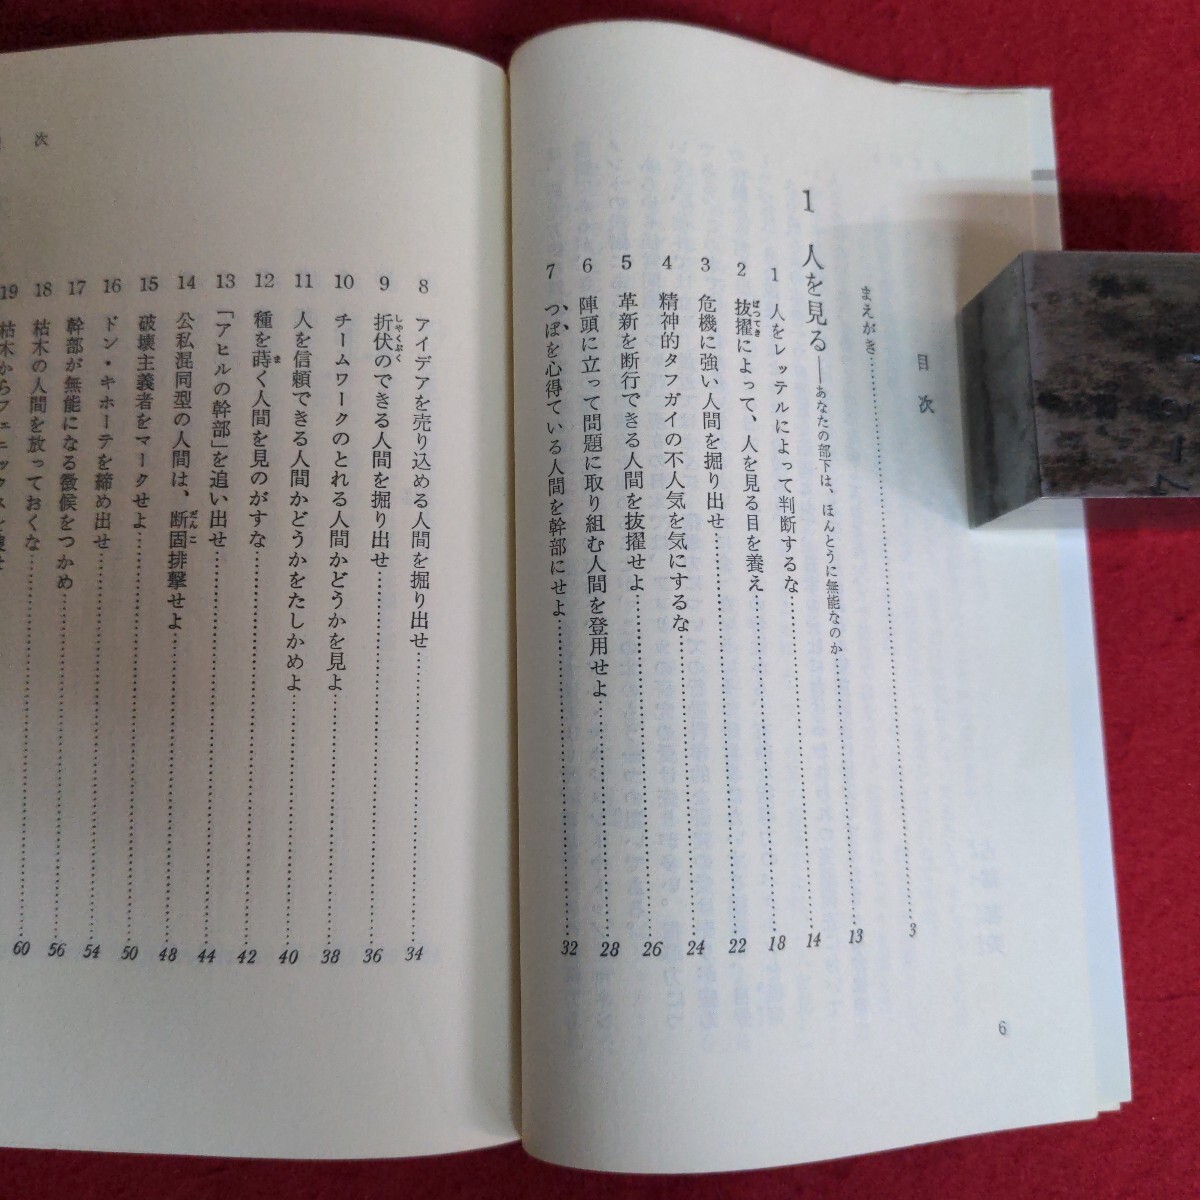 目次
まえがき……3
1 人を見る――あなたの部下は、ほんとうに無能なのか……13
1 人をレッテルによって判断するな……14
2 抜擢によって、人を見る目を養え……18
3 危機に強い人間を掘り出せ……22
4 精神的タフガイの不人気を気にするな……24
5 革新を断行できる人間を抜擢せよ……26
6 陣頭に立って問題に取り組む人間を登用せよ……28
7 つぼを心得ている人間を幹部にせよ……32
6
次
8 アイデアを売り込める人間を掘り出せ……34
9 折伏のできる人間を掘り出せ……36
10 チームワークのとれる人間かどうかを見よ……38
11 人を信頼できる人間かどうかをたしかめよ……40
12 種を蒔く人間を見のがすな……42
13 「アヒルの幹部」を追い出せ……44
14 公私混同型の人間は、断固排撃せよ……48
15 破壊主義者をマークせよ……50
16 ドン・キホーテを締め出せ……54
17 幹部が無能になる徴候をつかめ……56
18 枯木の人間を放っておくな……60
19 枯木からフェニックスを